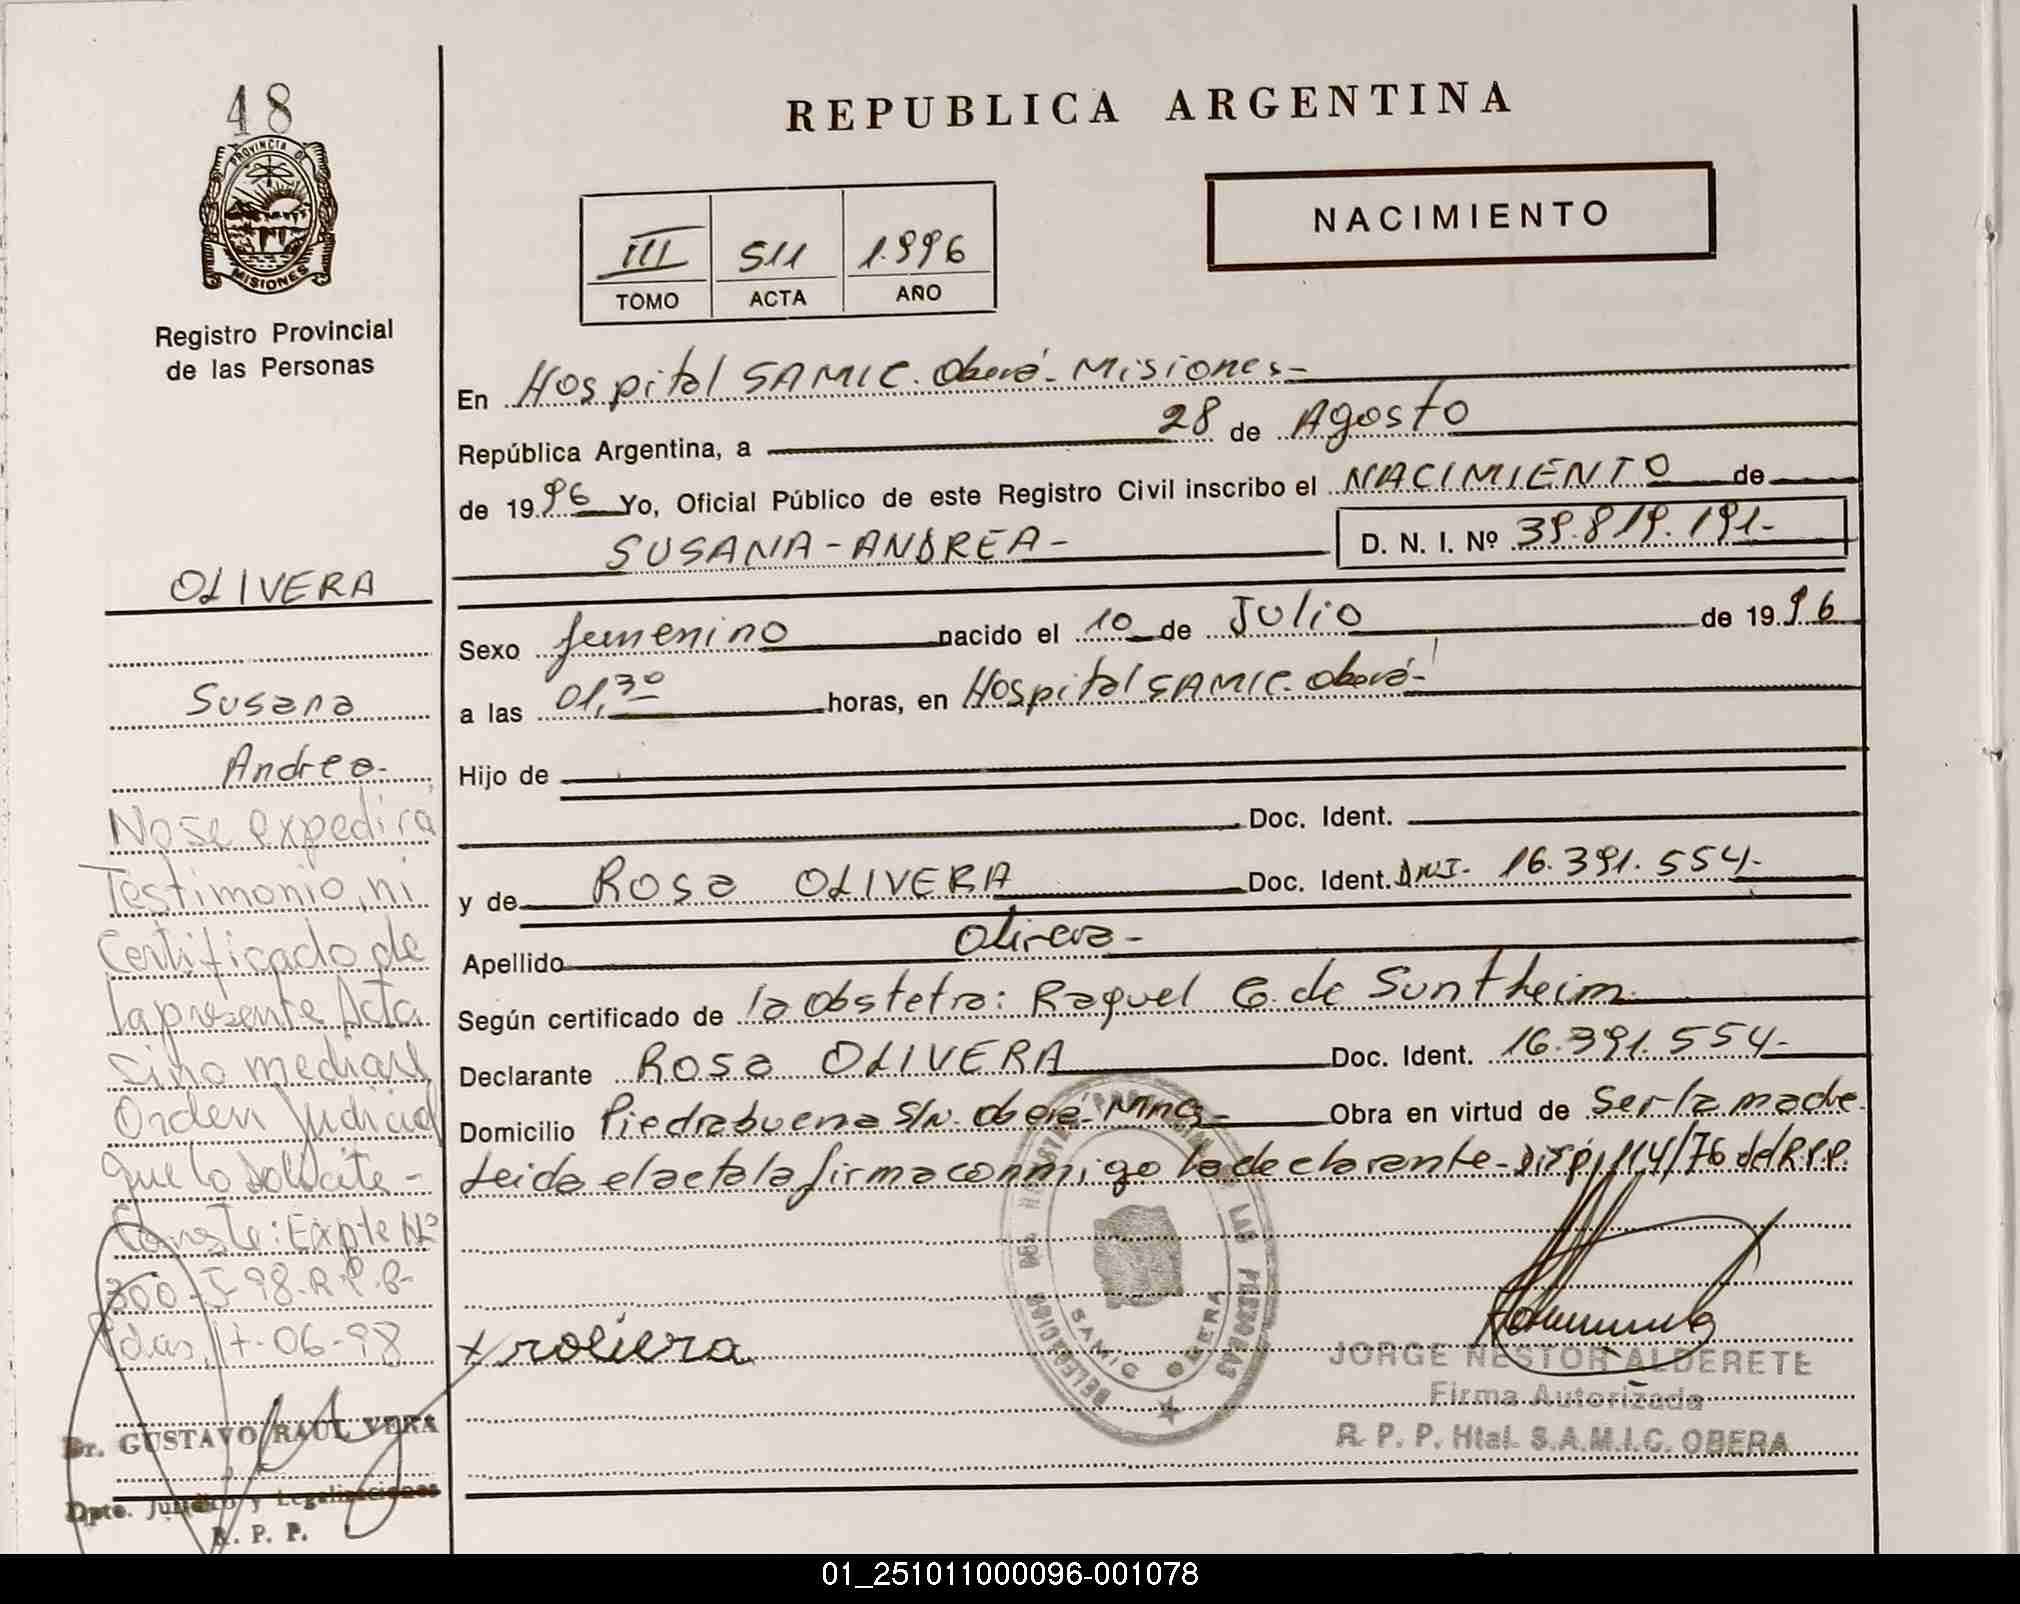 48
PROVINCIA DE
MISIONES
Registro Provincial
de las Personas
OLIVERA
Susana
Andrea-
No se expedira
Testimonio, ni
Certificado de
la presente Acta
Sino mediante
Orden Judicial
que lo solicite -
Conste: Expte Nº
300-J-98-R.P.P-
Pdas, 17-06-98
Dr. GUSTAVO RAUL VERA
Dpto. Jurídico y Legalizaciones
R. P. P.
REPUBLICA ARGENTINA
NACIMIENTO
III 511 1.996
TOMO ACTA AÑO
En Hospital SAMIC. Oberá- Misiones-
República Argentina, a 28 de Agosto
de 19 96 Yo, Oficial Público de este Registro Civil inscribo el NACIMIENTO de
SUSANA-ANDREA- D. N. I. Nº 39.819.191-
Sexo femenino nacido el 10 de Julio de 19 96
a las 01,30 horas, en Hospital SAMIC. Oberá-
Hijo de
Doc. Ident.
y de Rosa OLIVERA Doc. Ident. DNI- 16.391.554-
Apellido Olivera-
Según certificado de la obstetra: Raquel G. de Suntheim
Declarante Rosa OLIVERA Doc. Ident. 16.391.554-
Domicilio Piedrabuena S/N. Oberá- Mnes- Obra en virtud de Ser la madre-
Leida el acta la firma conmigo la declarante- Disp. 114/76 del R.P.P.
x roliera
DELEGACION DEL REGISTRO PROVINCIAL DE LAS PERSONAS
SAMIC OBERA
JORGE NESTOR ALDERETE
Firma Autorizada
R. P. P. Htal. S.A.M.I.C. OBERA
01_251011000096-001078